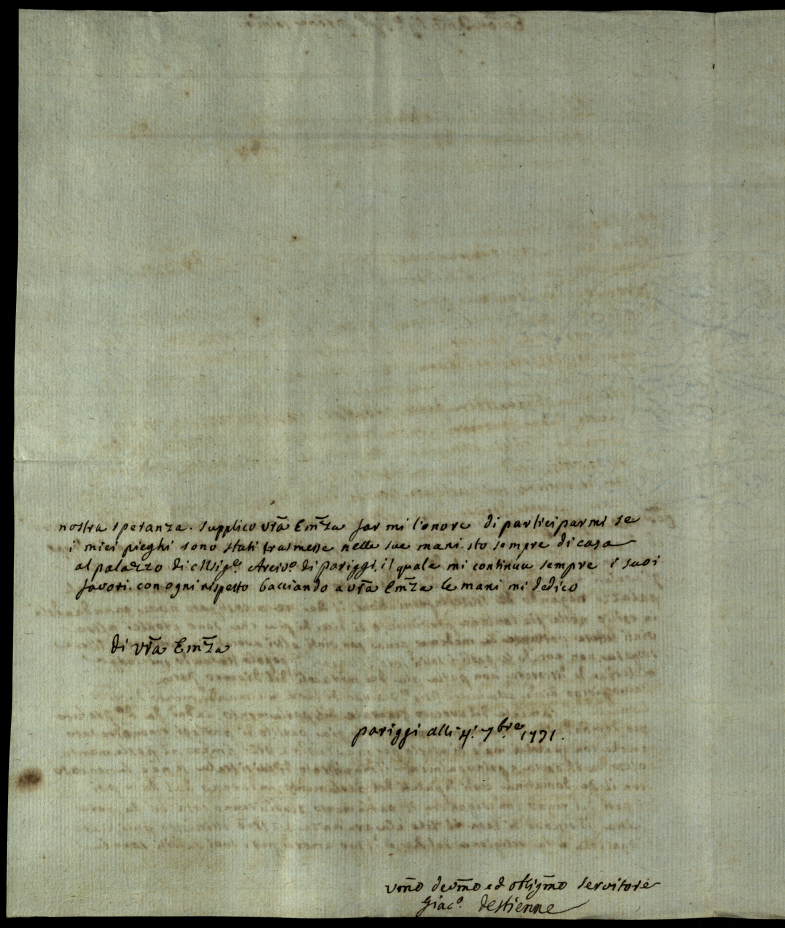 nostra speranza. supplico vrã Em̃za farmi l'onore di participarmi se
i miei pieghi sono stati trasmesse nelle sue mani. sto sempre di casa
al palazzo di Msigr. Arcivo. di pariggi. il quale mi continua sempre i suoi
favori. con ogni rispetto bacciando a vrã Em̃za le mani mi dedico
di vrã Em̃za
pariggi alli 4. 7bre 1771.
vm̃o devm̃o ed obligm̃o servitore
Giaco. destienne